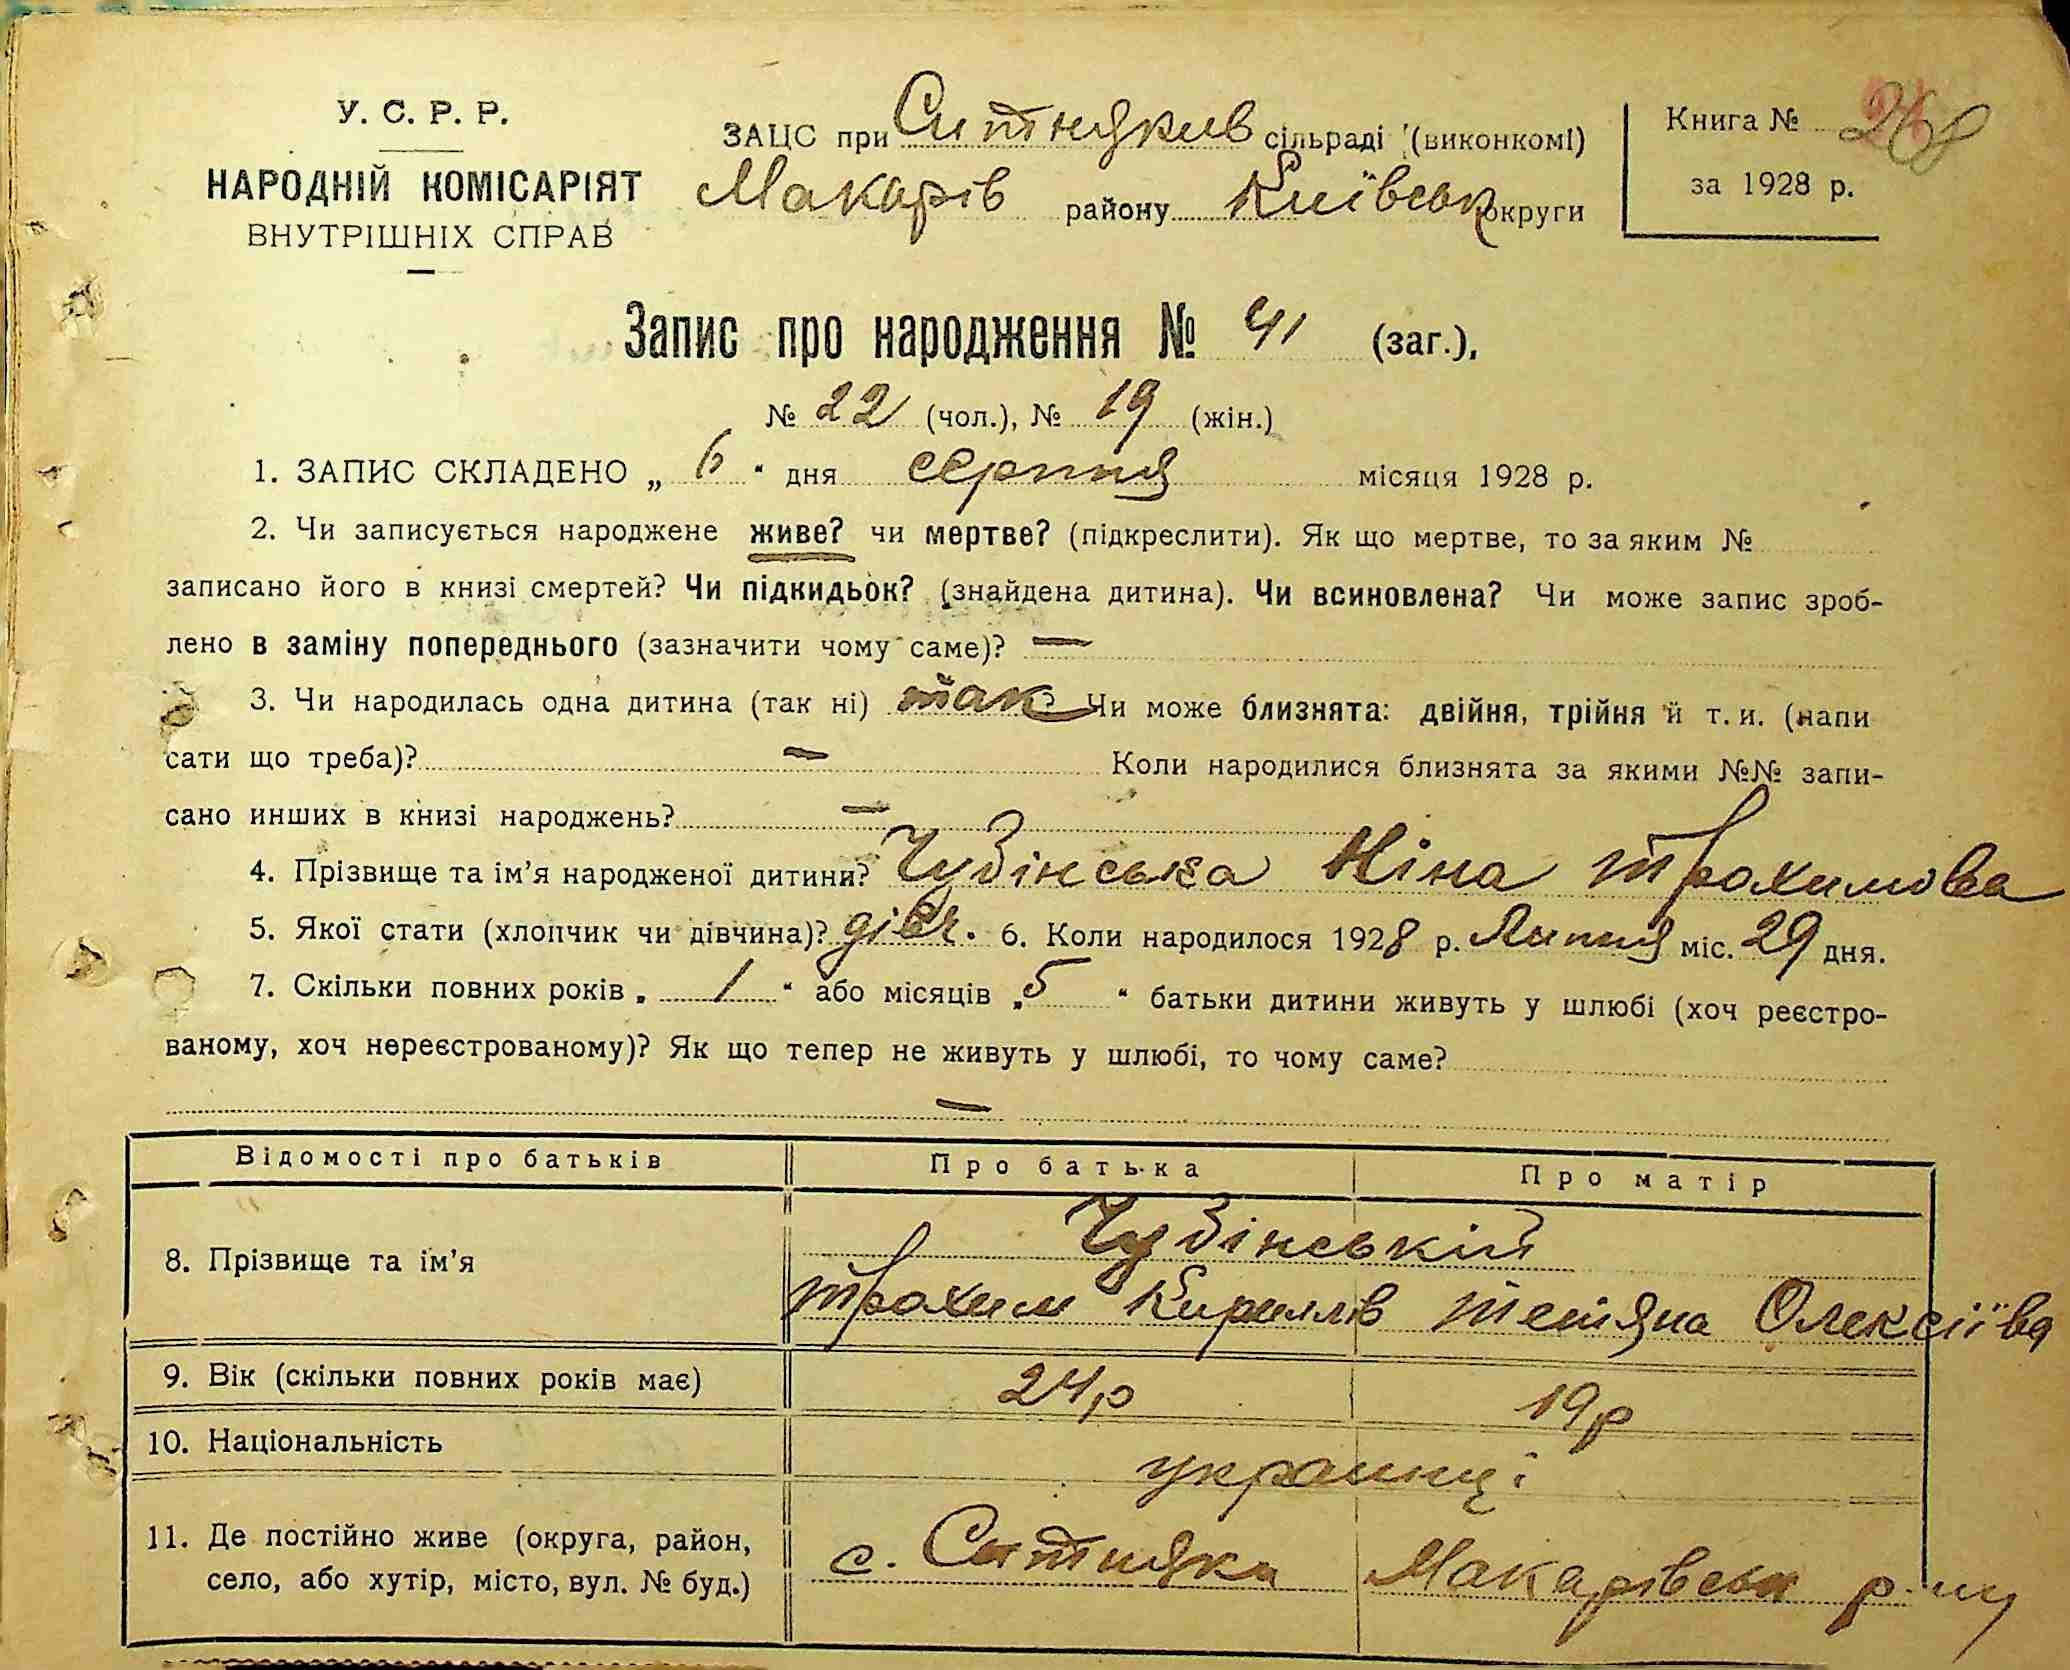 У. С. Р. Р.
НАРОДНІЙ КОМІСАРІЯТ
ВНУТРІШНІХ СПРАВ
ЗАЦС при Ситняків сільраді (виконкомі)
Макарів району Київськ округи
Книга №
за 1928 р.
Запис про народження № 41 (заг.),
№ 22 (чол.), № 19 (жін.)
1. ЗАПИС СКЛАДЕНО „ 6 " дня серпня місяця 1928 р.
2. Чи записується народжене живе? чи мертве? (підкреслити). Як що мертве, то за яким №
записано його в книзі смертей? Чи підкидьок? (знайдена дитина). Чи всиновлена? Чи може запис зроб-
лено в заміну попереднього (зазначити чому саме)? —
3. Чи народилась одна дитина (так ні) так Чи може близнята: двійня, трійня й т. и. (напи
сати що треба)? — Коли народилися близнята за якими №№ запи-
сано инших в книзі народжень? —
4. Прізвище та ім'я народженої дитини? Чубінська Ніна Трохимова
5. Якої стати (хлопчик чи дівчина)? дівч. 6. Коли народилося 1928 р. Липня міс. 29 дня.
7. Скільки повних років „ 1 " або місяців „ 5 " батьки дитини живуть у шлюбі (хоч реєстро-
ваному, хоч нереєстрованому)? Як що тепер не живуть у шлюбі, то чому саме?
—
Відомості про батьків Про батька Про матір
8. Прізвище та ім'я Чубінській
Трохим Кирилів Тетяна Олексіївa
9. Вік (скільки повних років має) 24р 19р
10. Національність українці
11. Де постійно живе (округа, район,
село, або хутір, місто, вул. № буд.)
с. Ситняки Макарівськ р-ну